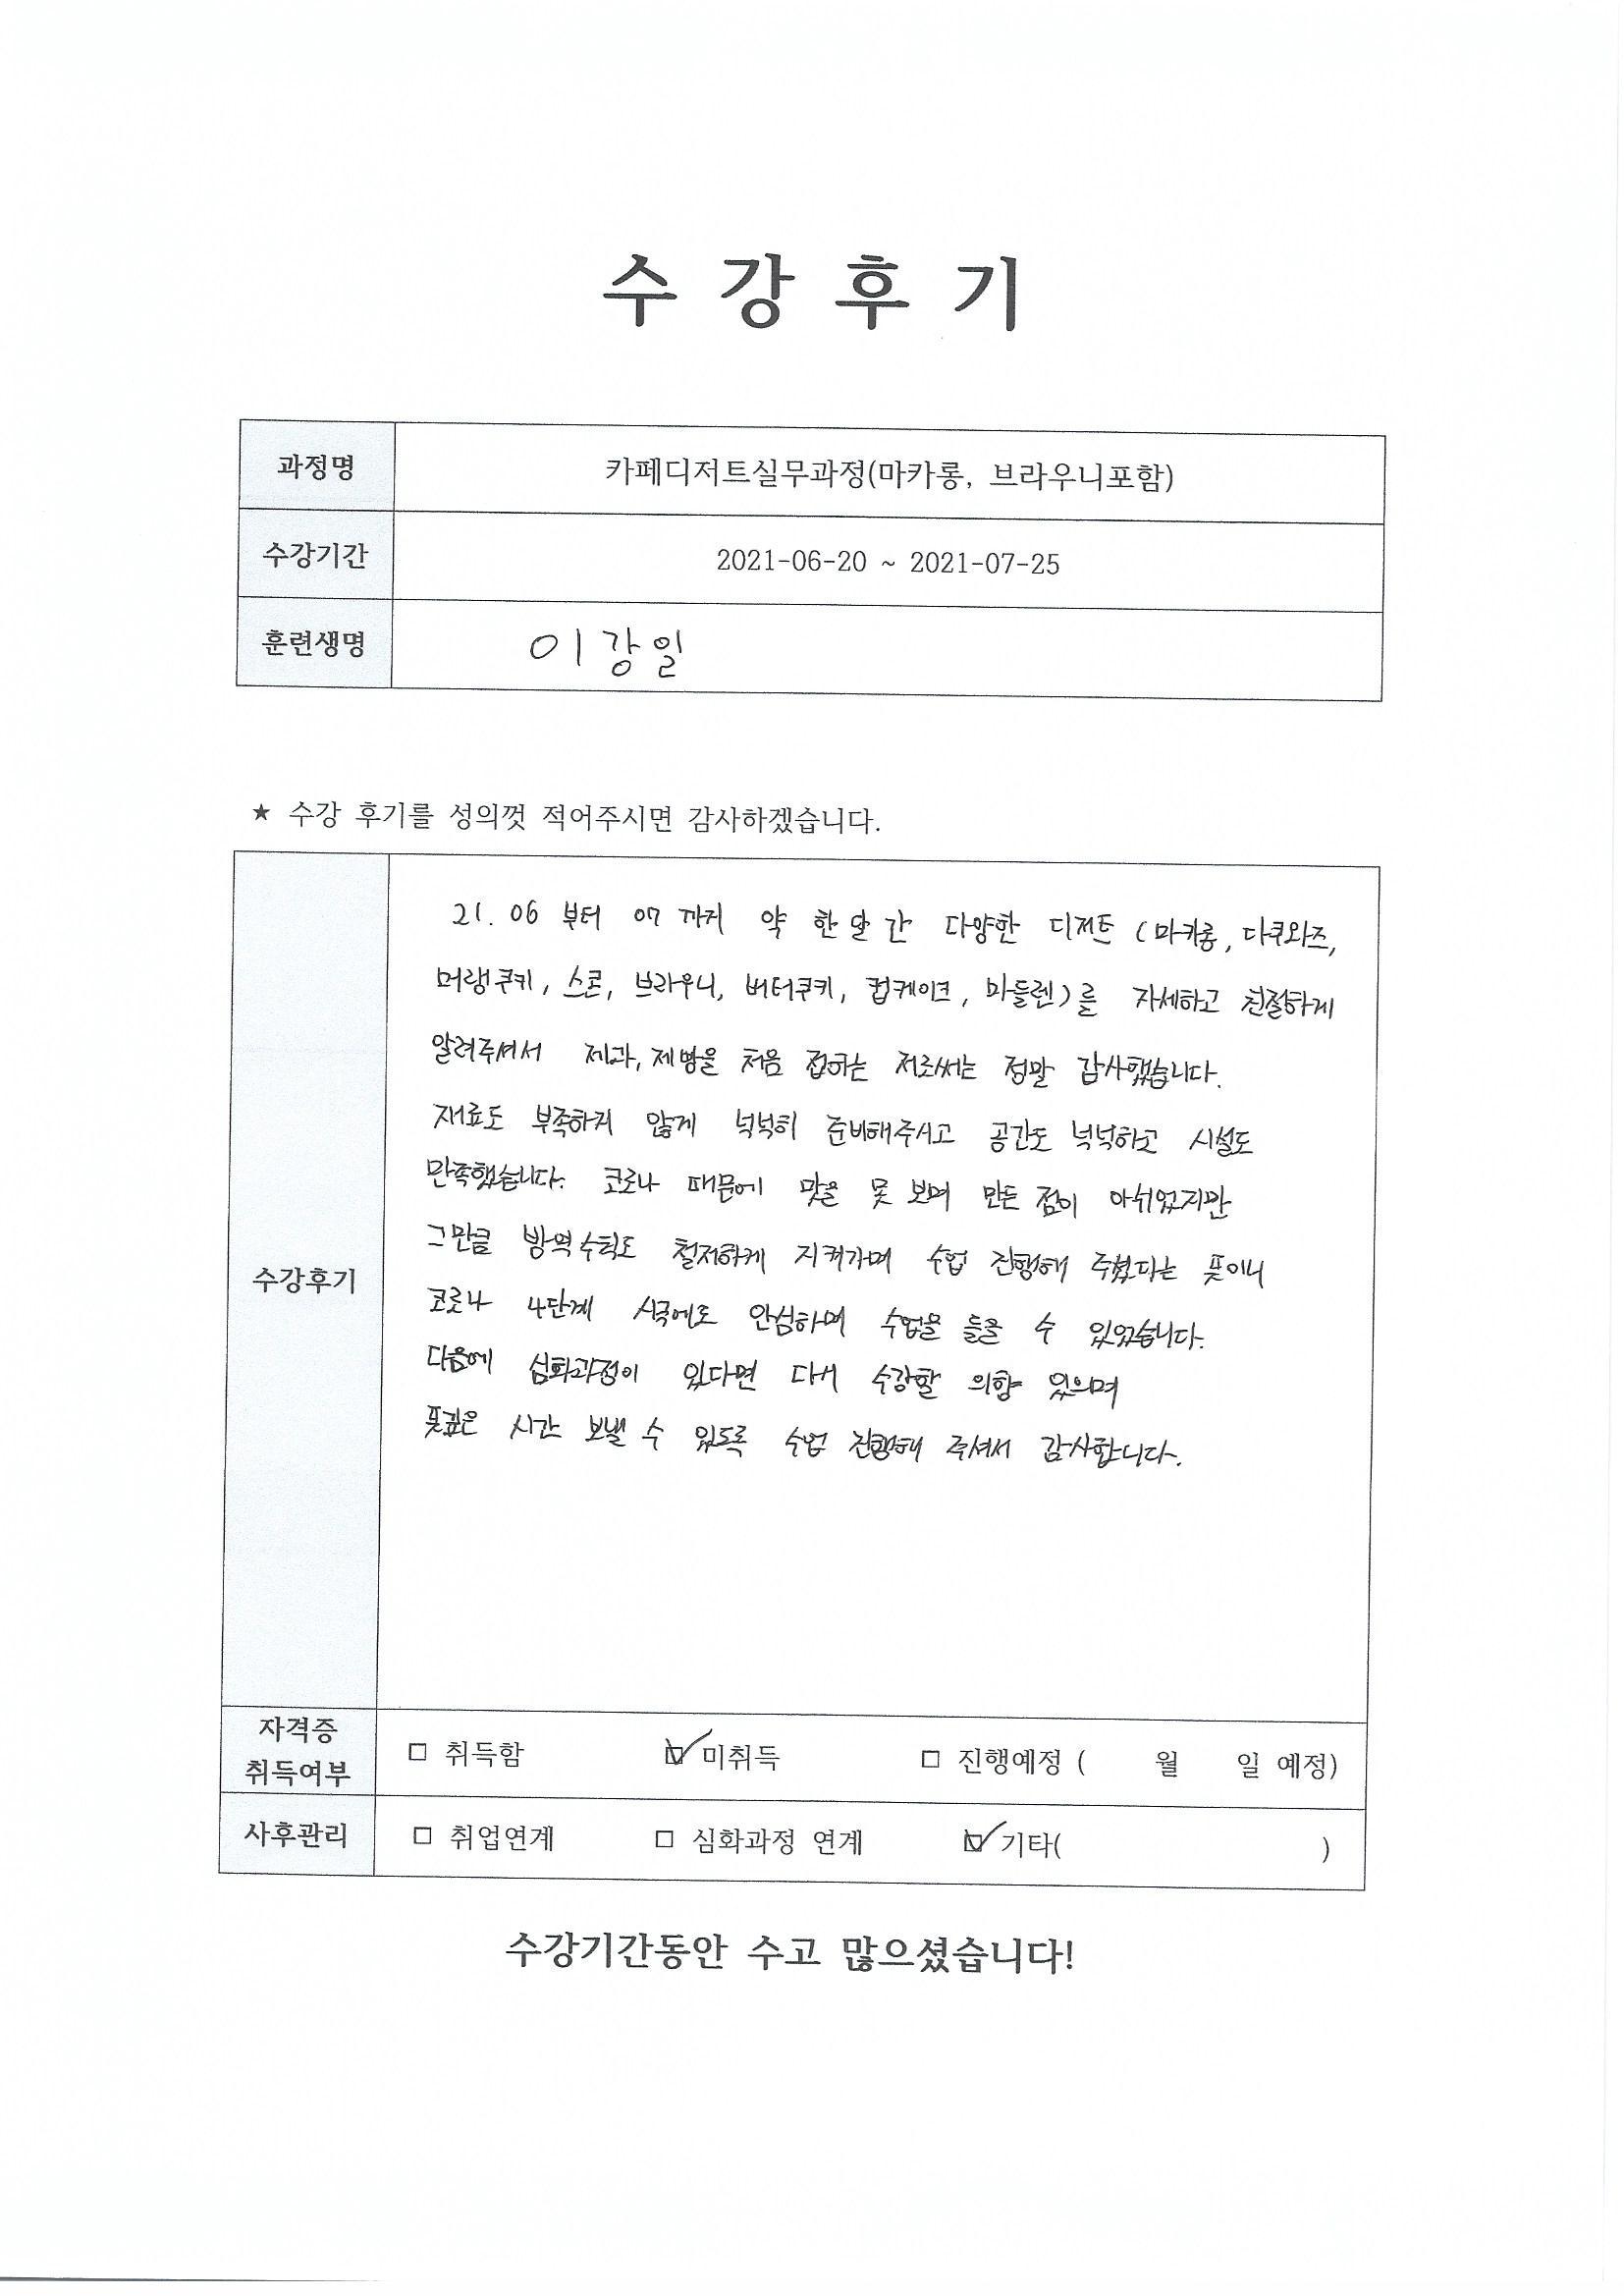 수 강 후 기
과정명 카페디저트실무과정(마카롱, 브라우니포함)
수강기간 2021-06-20 ~ 2021-07-25
훈련생명 이강일
★ 수강 후기를 성의껏 적어주시면 감사하겠습니다.
21. 06 부터 07 까지 약 한 달 간 다양한 디저트 (마카롱, 다쿠와즈,
머랭쿠키, 스콘, 브라우니, 버터쿠키, 컵케이크, 마들렌)를 자세하고 친절하게
알려주셔서 제과, 제빵을 처음 접하는 저로써는 정말 감사했습니다.
재료도 부족하지 않게 넉넉히 준비해주시고 공간도 넉넉하고 시설도
만족했습니다. 코로나 때문에 맛을 못 보며 만든 점이 아쉬었지만
그만큼 방역수칙도 철저하게 지켜가며 수업 진행해 주셨다는 뜻이니
수강후기
코로나 4단계 시국에도 안심하며 수업을 들을 수 있었습니다.
다음에 심화과정이 있다면 다시 수강할 의향 있으며
뜻깊은 시간 보낼 수 있도록 수업 진행해 주셔서 감사합니다.
자격증 취득여부 □ 취득함 ☑ 미취득 □ 진행예정 ( 월 일 예정)
사후관리 □ 취업연계 □ 심화과정 연계 ☑ 기타( )
수강기간동안 수고 많으셨습니다!